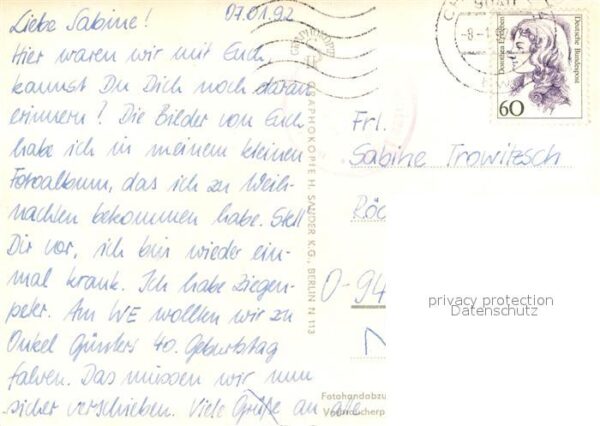 Liebe Sabine! 07.01.92
Hier waren wir mit Euch,
kannst Du Dich noch daran
erinnern? Die Bilder von Euch
habe ich in meinem kleinen
Fotoalbum, das ich zu Weih-
nachten bekommen habe. Stell
Dir vor, ich bin wieder ein-
mal krank. Ich habe Ziegen-
peter. Am WE wollten wir zu
Onkel Günters 40. Geburtstag
fahren. Das müssen wir nun
sicher verschieben. Viele Grüße an alle
GRAPHOKOPIE H. SANDER K.G., BERLIN N 113
Dorothea Erxleben
Deutsche Bundespost
60
Frl.
Sabine Trowitzsch
Röc
O-94
privacy protection
Datenschutz
Fotohandabzu
Verbraucherp